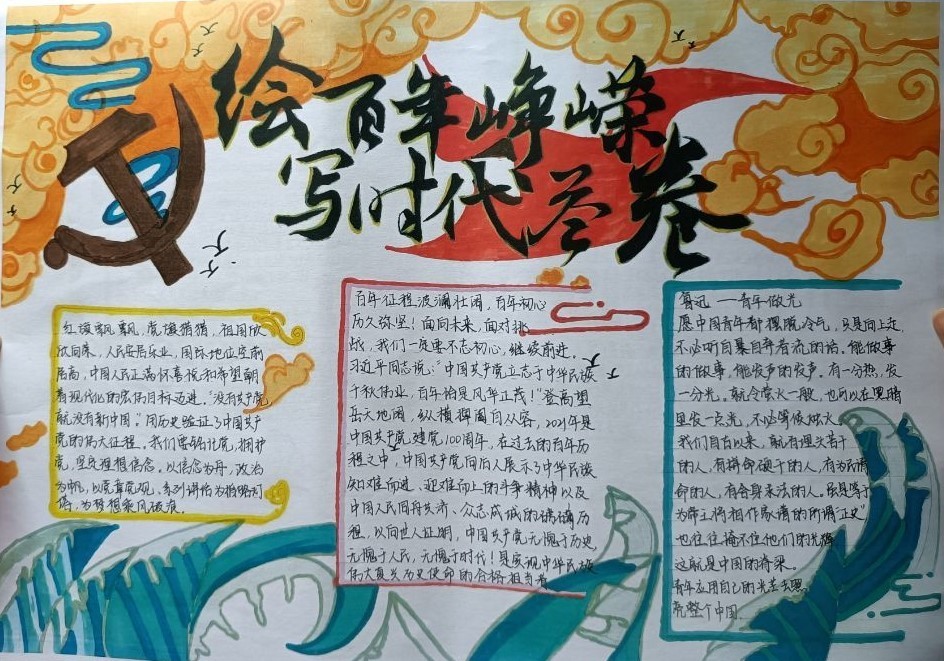 绘百年峥嵘
写时代答卷
红旗飘飘,党旗猎猎,祖国欣
欣向荣,人民安居乐业,国际地位空前
提高,中国人民正满怀喜悦和希望朝
着现代化的宏伟目标迈进。"没有共产党
就没有新中国"用历史验证了中国共产
党的伟大征程,我们要铭记党,拥护
党,坚定理想信念。以信念为舟,政治
为帆,以党章党规,系列讲话为指路灯
塔,为梦想乘风破浪。
百年征程波澜壮阔,百年初心
历久弥坚!面向未来,面对挑
战,我们一定要不忘初心,继续前进,
习近平同志说:"中国共产党立志于中华民族
千秋伟业,百年恰是风华正茂!"登高望
岳天地阔,纵横捭阖自从容,2021年是
中国共产党建党100周年,在过去的百年历
程之中,中国共产党向后人展示了中华民族
知难而进、迎难而上的斗争精神以及
中国人民同舟共济、众志成城的
程,以向世人证明,中国共产党无愧于历史,
无愧于人民,无愧于时代!是实现中华民族
伟大复兴历史使命的合格担当者
鲁迅——青年做光
愿中国青年都摆脱冷气,只是向上走,
不必听自暴自弃者流的话。能做事
的做事,能发声的发声。有一分热,发
一分光。就令萤火一般,也可以在黑暗
里发一点光,不必等候炬火。
我们自古以来,就有埋头苦干
的人,有拼命硬干的人,有为民请
命的人,有舍身求法的人。虽是等于
为帝王将相作家谱的所谓"正史"
也往往掩不住他们的光辉
这就是中国的脊梁。
青年应用自己的光芒去照
亮整个中国.